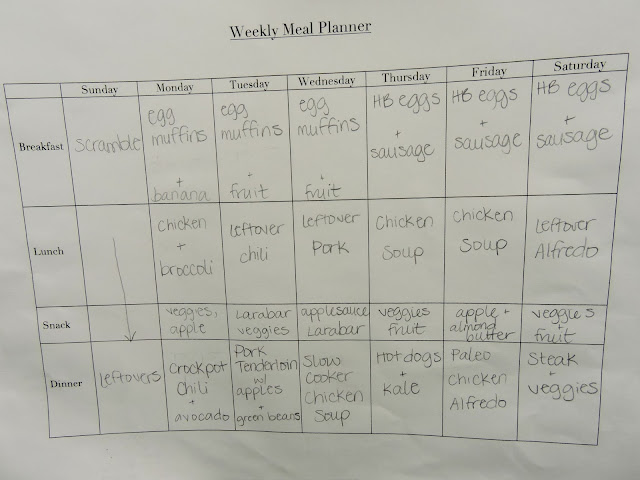 Weekly Meal Planner
Sunday Monday Tuesday Wednesday Thursday Friday Saturday
Breakfast
scramble
egg
muffins
+
banana
egg
muffins
+
fruit
egg
muffins
+
fruit
HB eggs
+
sausage
HB eggs
+
sausage
HB eggs
+
sausage
Lunch
chicken
+
broccoli
leftover
chili
leftover
Pork
Chicken
Soup
Chicken
Soup
leftover
Alfredo
Snack
veggies,
apple
Larabar
veggies
applesauce
Larabar
veggies
fruit
apple +
almond
butter
veggies
+
fruit
Dinner
leftovers
Crockpot
Chili
+
avocado
Pork
Tenderloin
w/
apples
+
green beans
Slow
Cooker
Chicken
Soup
Hotdogs
+
Kale
Paleo
chicken
Alfredo
Steak
+
veggies